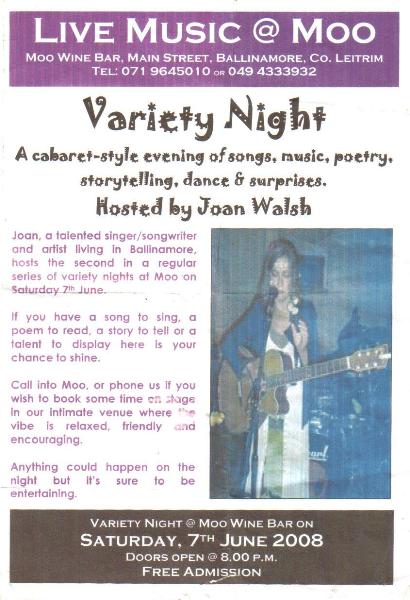 LIVE MUSIC @ MOO
MOO WINE BAR, MAIN STREET, BALLINAMORE, CO. LEITRIM
TEL: 071 9645010 OR 049 4333932
Variety Night
A cabaret-style evening of songs, music, poetry,
storytelling, dance & surprises.
Hosted by Joan Walsh
Joan, a talented singer/songwriter
and artist living in Ballinamore,
hosts the second in a regular
series of variety nights at Moo on
Saturday 7th June.
If you have a song to sing, a
poem to read, a story to tell or a
talent to display here is your
chance to shine.
Call into Moo, or phone us if you
wish to book some time on stage
in our intimate venue where the
vibe is relaxed, friendly and
encouraging.
Anything could happen on the
night but it's sure to be
entertaining.
Pearl
VARIETY NIGHT @ MOO WINE BAR ON
SATURDAY, 7TH JUNE 2008
DOORS OPEN @ 8.00 P.M.
FREE ADMISSION